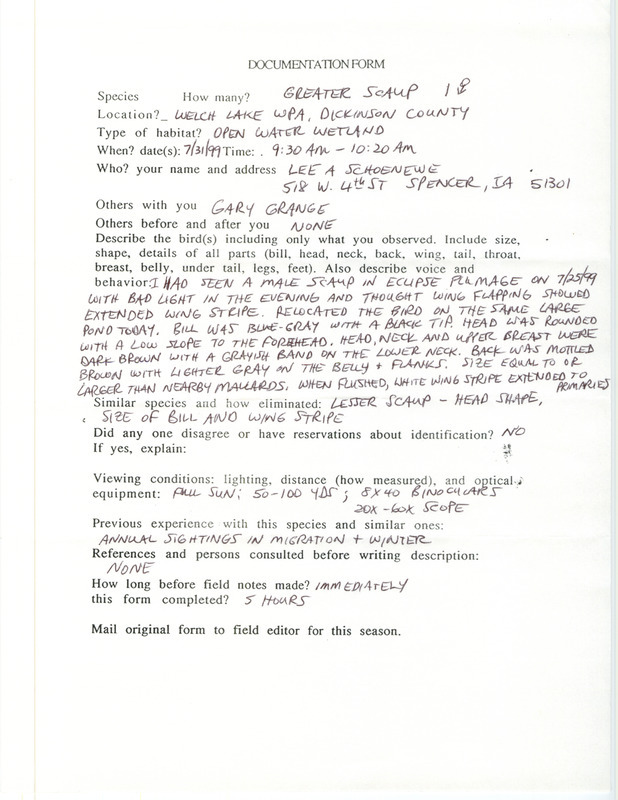 DOCUMENTATION FORM
Species How many? GREATER SCAUP 1 ♂
Location?_ WELCH LAKE WPA, DICKINSON COUNTY
Type of habitat? OPEN WATER WETLAND
When? date(s): 7/31/99 Time: . 9:30 AM - 10:20 AM
Who? your name and address LEE A SCHOENEWE
518 W. 4th ST SPENCER, IA 51301
Others with you GARY GRANGE
Others before and after you NONE
Describe the bird(s) including only what you observed. Include size,
shape, details of all parts (bill, head, neck, back, wing, tail, throat,
breast, belly, under tail, legs, feet). Also describe voice and
behavior: I HAD SEEN A MALE SCAUP IN ECLIPSE PLUMAGE ON 7/25/99
WITH BAD LIGHT IN THE EVENING AND THOUGHT WING FLAPPING SHOWED
EXTENDED WING STRIPE. RELOCATED THE BIRD ON THE SAME LARGE
POND TODAY. BILL WAS BLUE-GRAY WITH A BLACK TIP. HEAD WAS ROUNDED
WITH A LOW SLOPE TO THE FOREHEAD. HEAD, NECK AND UPPER BREAST WERE
DARK BROWN WITH A GRAYISH BAND ON THE LOWER NECK. BACK WAS MOTTLED
BROWN WITH LIGHTER GRAY ON THE BELLY + FLANKS. SIZE EQUAL TO OR
LARGER THAN NEARBY MALLARDS. WHEN FLUSHED, WHITE WING STRIPE EXTENDED TO PRIMARIES
Similar species and how eliminated: LESSER SCAUP - HEAD SHAPE,
SIZE OF BILL AND WING STRIPE
Did any one disagree or have reservations about identification? NO
If yes, explain:
Viewing conditions: lighting, distance (how measured), and optical
equipment: FULL SUN; 50-100 YDS; 8X40 BINOCULARS
20X-60X SCOPE
Previous experience with this species and similar ones:
ANNUAL SIGHTINGS IN MIGRATION + WINTER
References and persons consulted before writing description:
NONE
How long before field notes made? IMMEDIATELY
this form completed? 5 HOURS
Mail original form to field editor for this season.